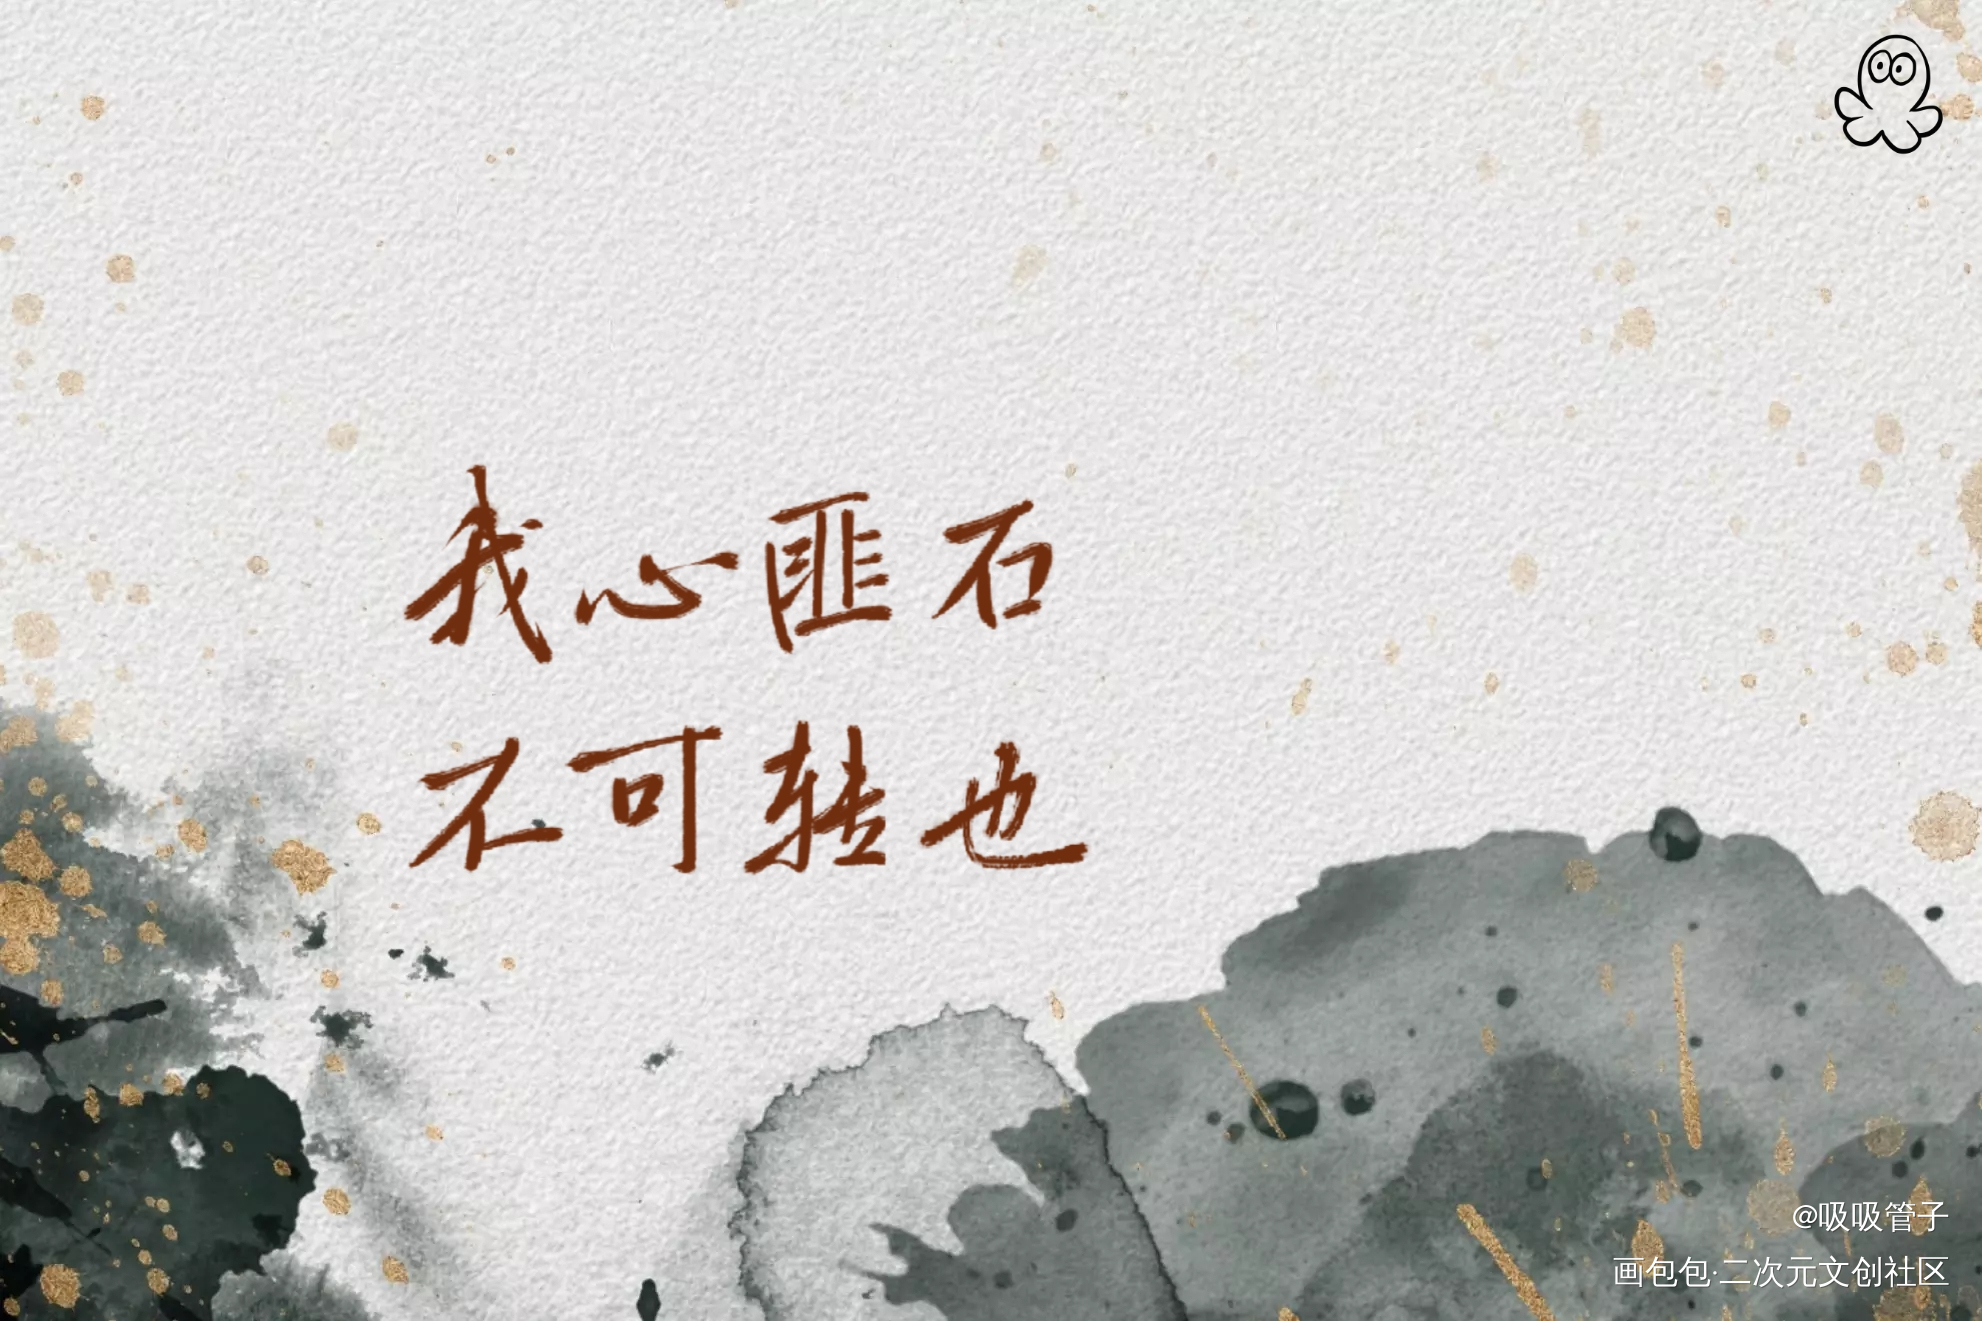 我心匪石
不可转也
@吸吸管子
画包包·二次元文创社区